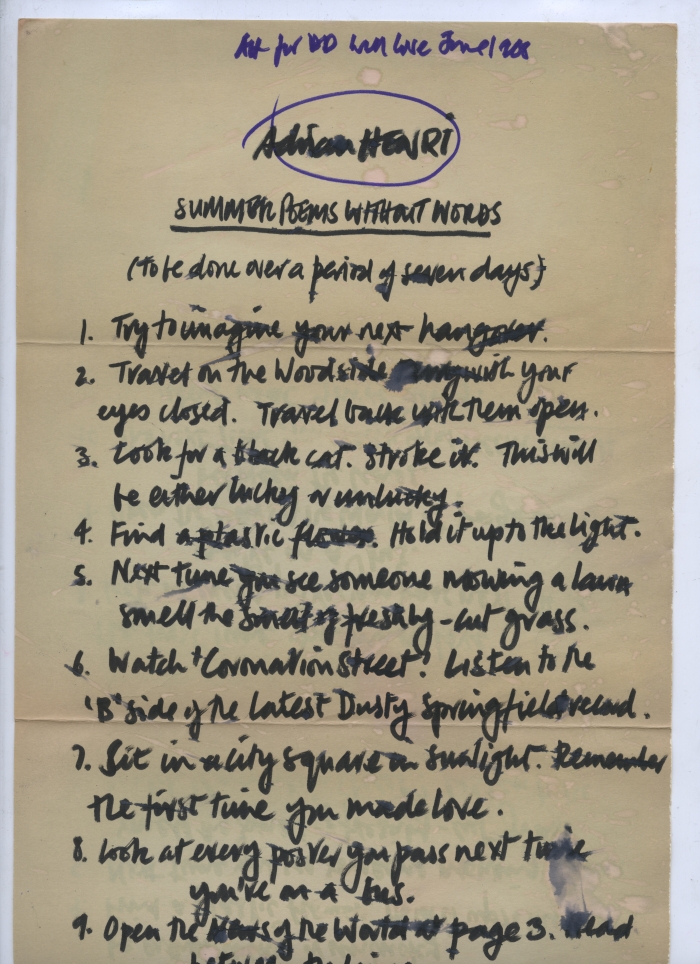 for with love June
Adrian HENRI
SUMMER POEMS WITHOUT WORDS
(to be done over a period of seven days)
1. Try to imagine your next hangover.
2. Travel on the Woodside Ferry with your
eyes closed. Travel back with them open.
3. Look for a black cat. Stroke it. This will
be either lucky or unlucky.
4. Find a plastic flower. Hold it up to the light.
5. Next time you see someone mowing a lawn
smell the smell of freshly-cut grass.
6. Watch 'Coronation Street'. Listen to the
'B' side of the latest Dusty Springfield record.
7. Sit in a city square in sunlight. Remember
the first time you made love.
8. Look at every poster you pass next time
you're on a bus.
9. Open the News of the World at page 3. Read
between the lines.